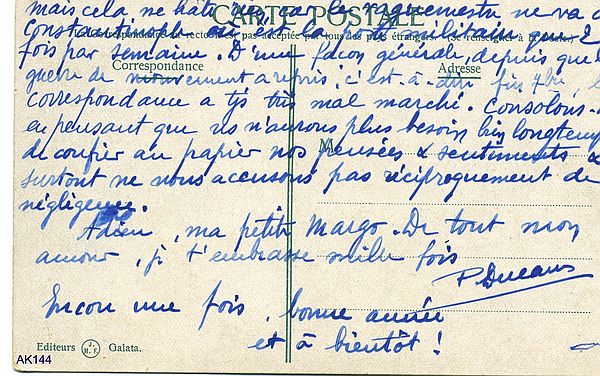 mais cela ne hâte rien, car le vaguemestre ne va à
CARTE POSTALE
Constantinople où est la poste militaire que 2
(Correspondance au recto n'est pas acceptée par tous les pays étrangers. (Se renseigner à la Poste).
fois par semaine. D'une façon générale, depuis que la
Correspondance
Adresse
guerre de mouvement a repris, c'est-à-dire fin 7bre, l
correspondance a tjs très mal marché. Consolons-
en pensant que ns n'aurons plus besoin bien longtemps
M
de confier au papier nos pensées & sentiments &
surtout ne nous accusons pas réciproquement de
négligence.
Adieu, ma petite Margo. De tout mon
amour, je t'embrasse mille fois
Encore une fois, bonne année
et à bientôt !
Editeurs J. M. F. Galata.
AK144